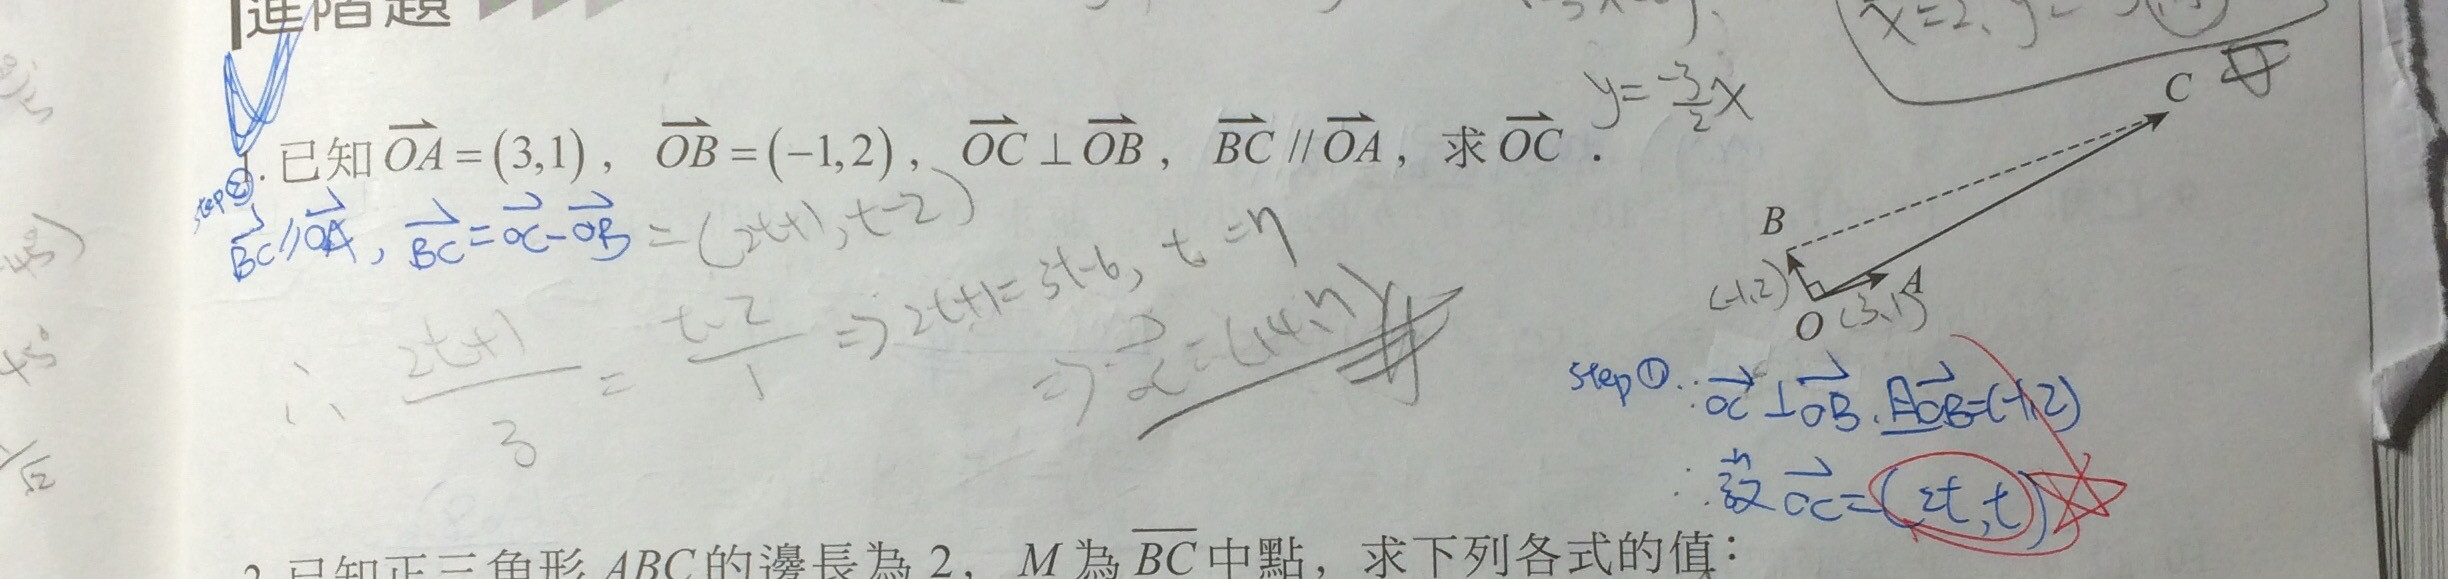 進階題
x=2, y=
y=-3/2x
1. 已知 OA=(3,1), OB=(-1,2), OC⊥OB, BC//OA, 求 OC.
step②
BC//OA, BC=OC-OB=(2t+1, t-2)
∴ 2t+1/3 = t-2/1 ⇒ 2t+1=3t-6, t=7
⇒ OC=(14,7)
C
B
(-1,2)
A
O (3,1)
step① ∵ OC⊥OB, 且OB=(-1,2)
∴ 設 OC=(2t,t)
2. 已知正三角形 ABC 的邊長為 2, M 為 BC 中點, 求下列各式的值: